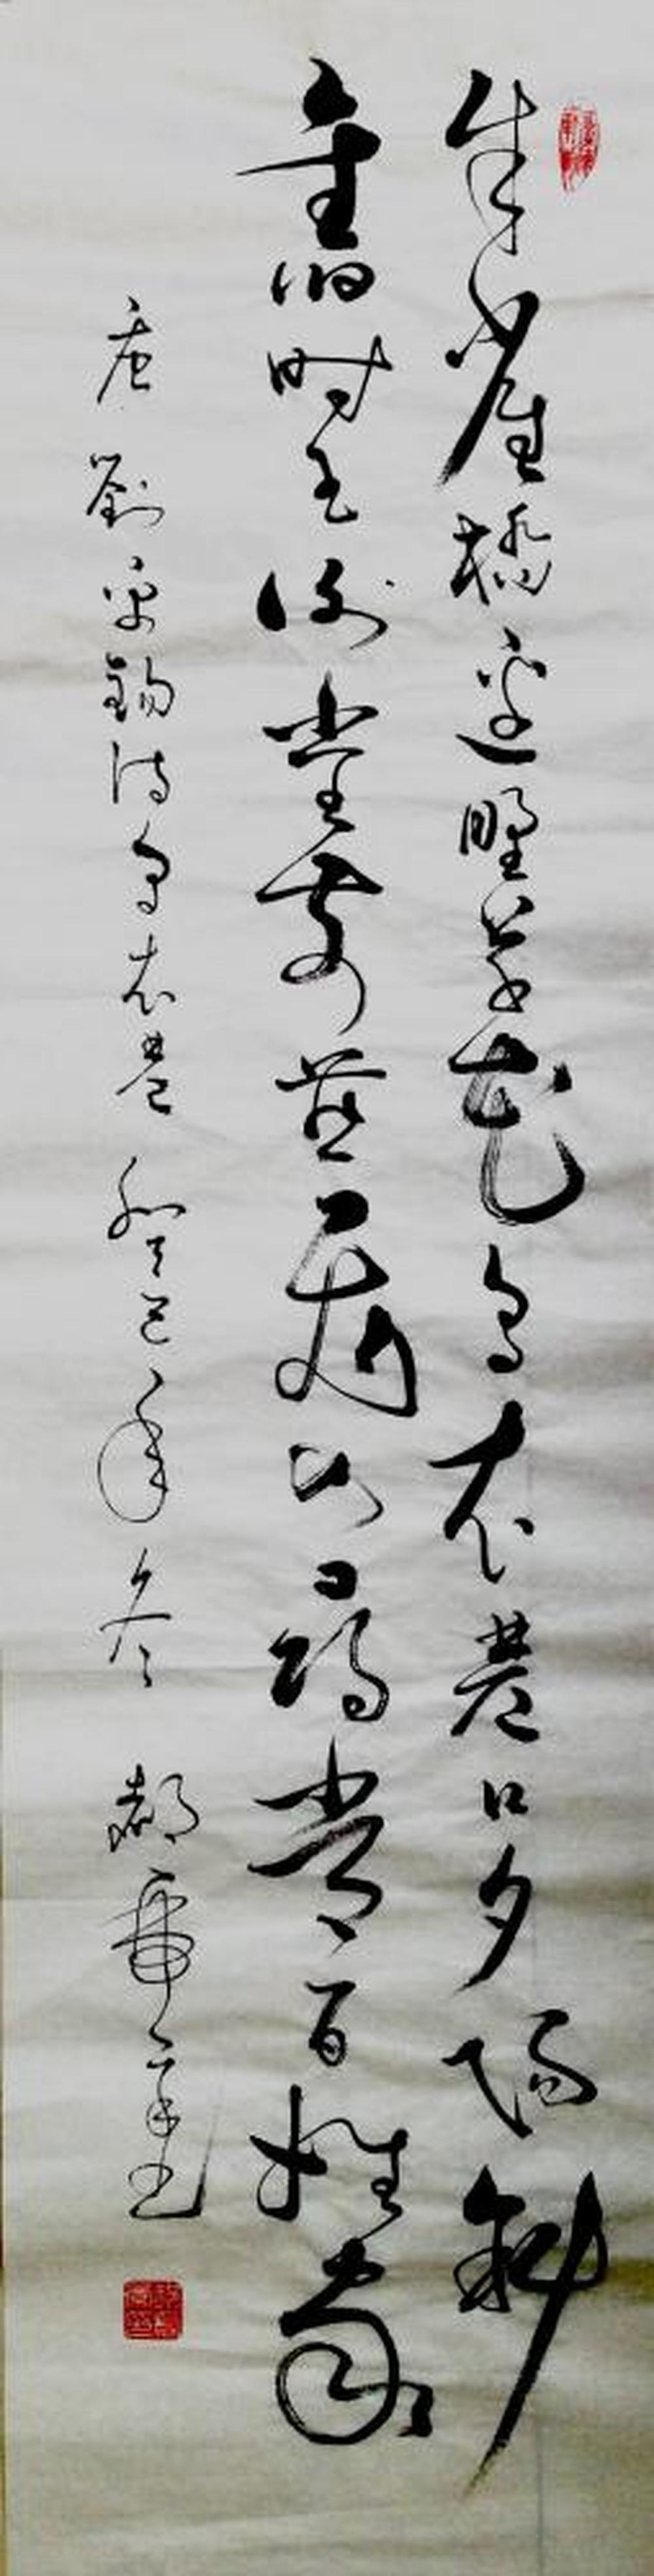 朱雀桥边野草花乌衣巷口夕阳斜
旧时王谢堂前燕飞入寻常百姓家
唐刘禹锡诗乌衣巷 癸巳年冬